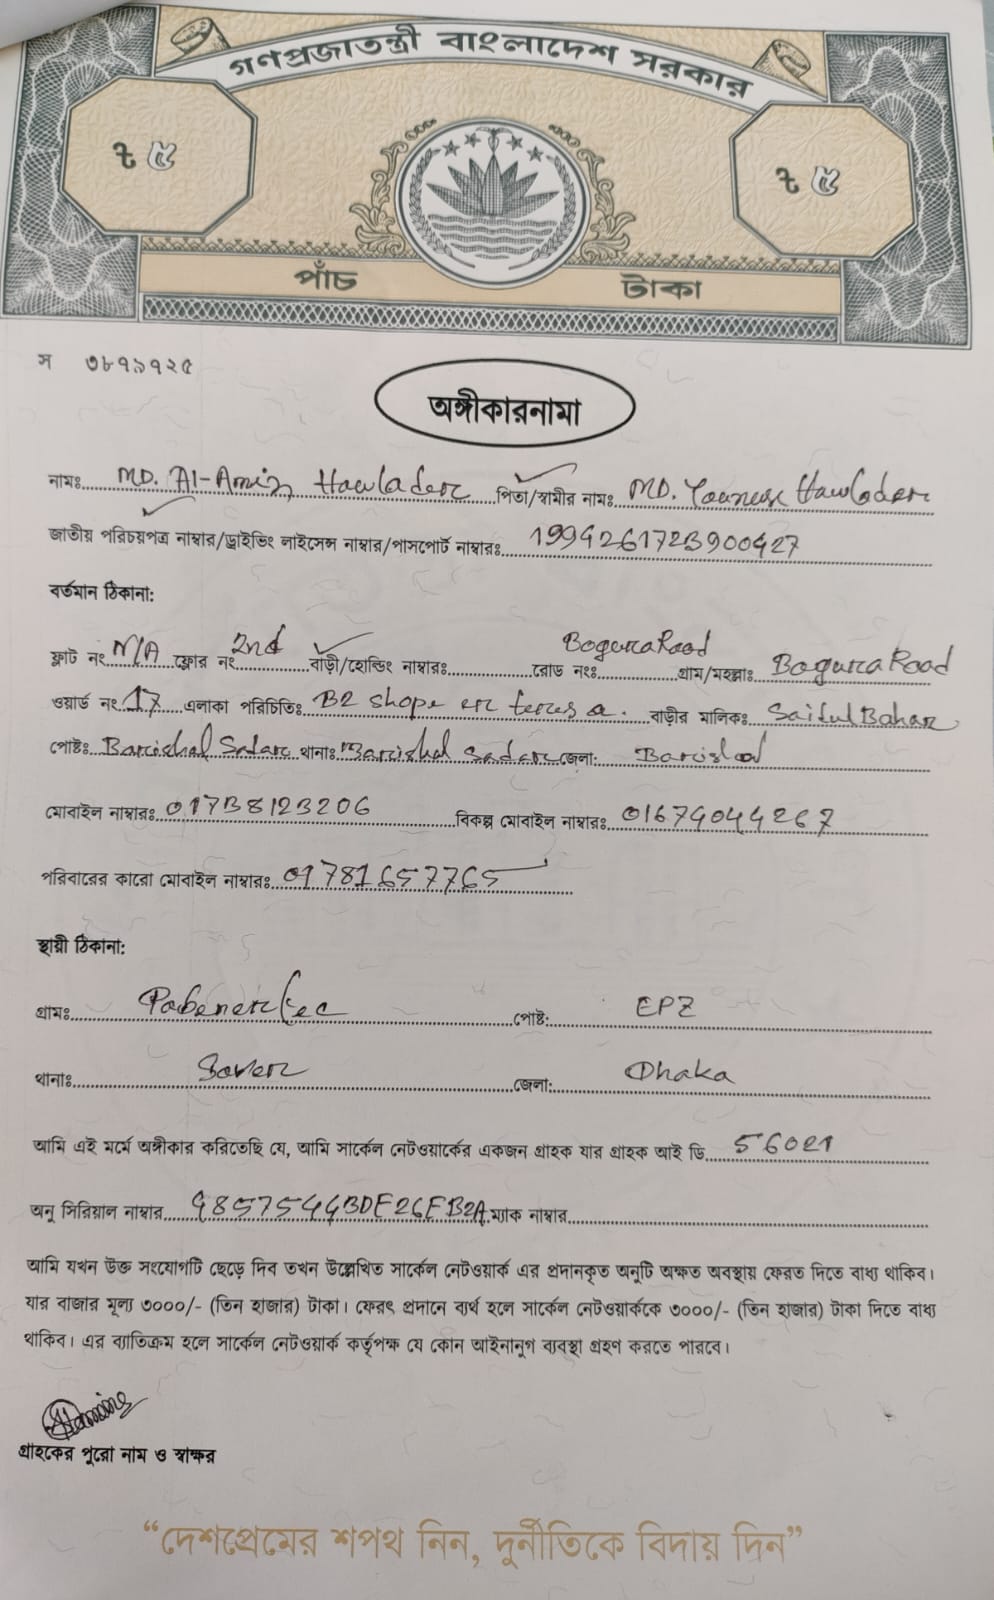 গণপ্রজাতন্ত্রী বাংলাদেশ সরকার
৳ ৫ ৳ ৫
পাঁচ টাকা
স ৩৮৭৯৭২৫
অঙ্গীকারনামা
নামঃ MD. Al-Amin Hawlader পিতা/স্বামীর নাম: MD. Younus Hawlader
জাতীয় পরিচয়পত্র নাম্বার/ড্রাইভিং লাইসেন্স নাম্বার/পাসপোর্ট নাম্বারঃ 1994261723900427
বর্তমান ঠিকানা:
ফ্লাট নং N/A ফ্লোর নং 2nd বাড়ী/হোল্ডিং নাম্বারঃ রোড নংঃ Bogura Road গ্রাম/মহল্লাঃ Bogura Road
ওয়ার্ড নং 17 এলাকা পরিচিতিঃ B2 shope er বাড়ীর মালিকঃ Saiful Bahar
পোষ্টঃ Barishal Sadar থানাঃ Barishal sadar জেলা: Barishal
মোবাইল নাম্বারঃ 01738123206 বিকল্প মোবাইল নাম্বারঃ 01674044267
পরিবারের কারো মোবাইল নাম্বারঃ 01781657765
স্থায়ী ঠিকানা:
গ্রামঃ পোষ্ট: EPZ
থানাঃ Saver জেলা: Dhaka
আমি এই মর্মে অঙ্গীকার করিতেছি যে, আমি সার্কেল নেটওয়ার্কের একজন গ্রাহক যার গ্রাহক আই ডি 56021
অনু সিরিয়াল নাম্বার 48575444BDE26EB2A ম্যাক নাম্বার
আমি যখন উক্ত সংযোগটি ছেড়ে দিব তখন উল্লেখিত সার্কেল নেটওয়ার্ক এর প্রদানকৃত অনুটি অক্ষত অবস্থায় ফেরত দিতে বাধ্য থাকিব।
যার বাজার মূল্য ৩০০০/- (তিন হাজার) টাকা। ফেরৎ প্রদানে ব্যর্থ হলে সার্কেল নেটওয়ার্ককে ৩০০০/- (তিন হাজার) টাকা দিতে বাধ্য
থাকিব। এর ব্যাতিক্রম হলে সার্কেল নেটওয়ার্ক কর্তৃপক্ষ যে কোন আইনানুগ ব্যবস্থা গ্রহণ করতে পারবে।
গ্রাহকের পুরো নাম ও স্বাক্ষর
“দেশপ্রেমের শপথ নিন, দুর্নীতিকে বিদায় দিন”